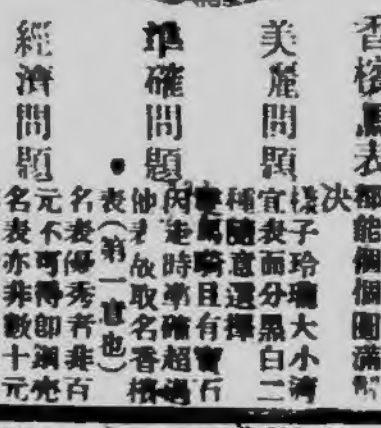 香檳馬表都能個個圓滿解
決
美麗問題
樣子玲瓏大小適
宜表面分黑白二
種隨意選擇
準確問題
馬騎且有寶石
因走時準確超過
他表故取名香檳
表(第一官也)
經濟問題
名表優秀者非百
元不可得即鋼壳
名表亦非數十元